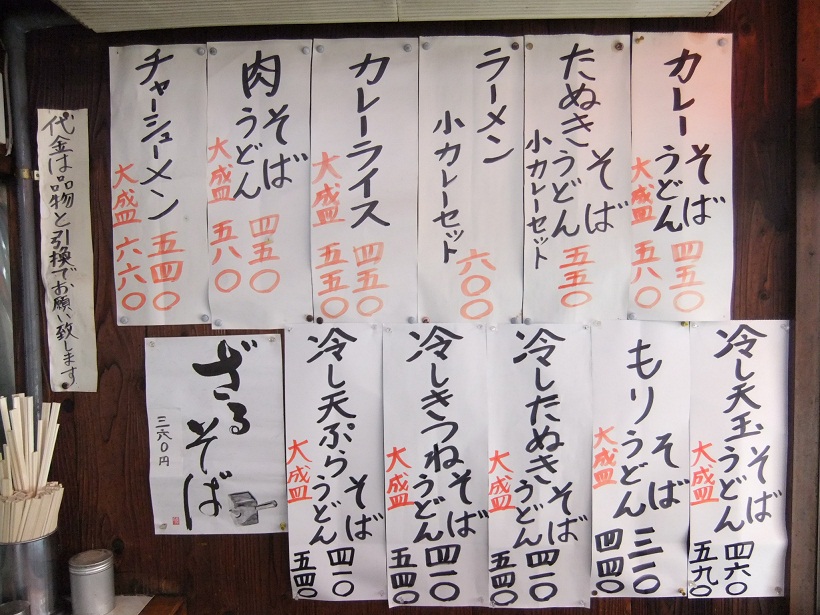 カレーそば
うどん
四五〇
大盛
五八〇
たぬきそば
うどん
小カレーセット
五五〇
ラーメン
小カレーセット
六〇〇
カレーライス
四五〇
大盛
五五〇
肉そば
うどん
四五〇
大盛
五八〇
チャーシューメン
五四〇
大盛
六六〇
代金は品物と引換でお願い致します
冷し天玉そば
うどん
四六〇
大盛
五九〇
もりそば
うどん
三一〇
大盛
四四〇
冷したぬきそば
うどん
四一〇
大盛
五四〇
冷しきつねそば
うどん
四一〇
大盛
五四〇
冷し天ぷらそば
うどん
四一〇
大盛
五四〇
ざるそば
三六〇円